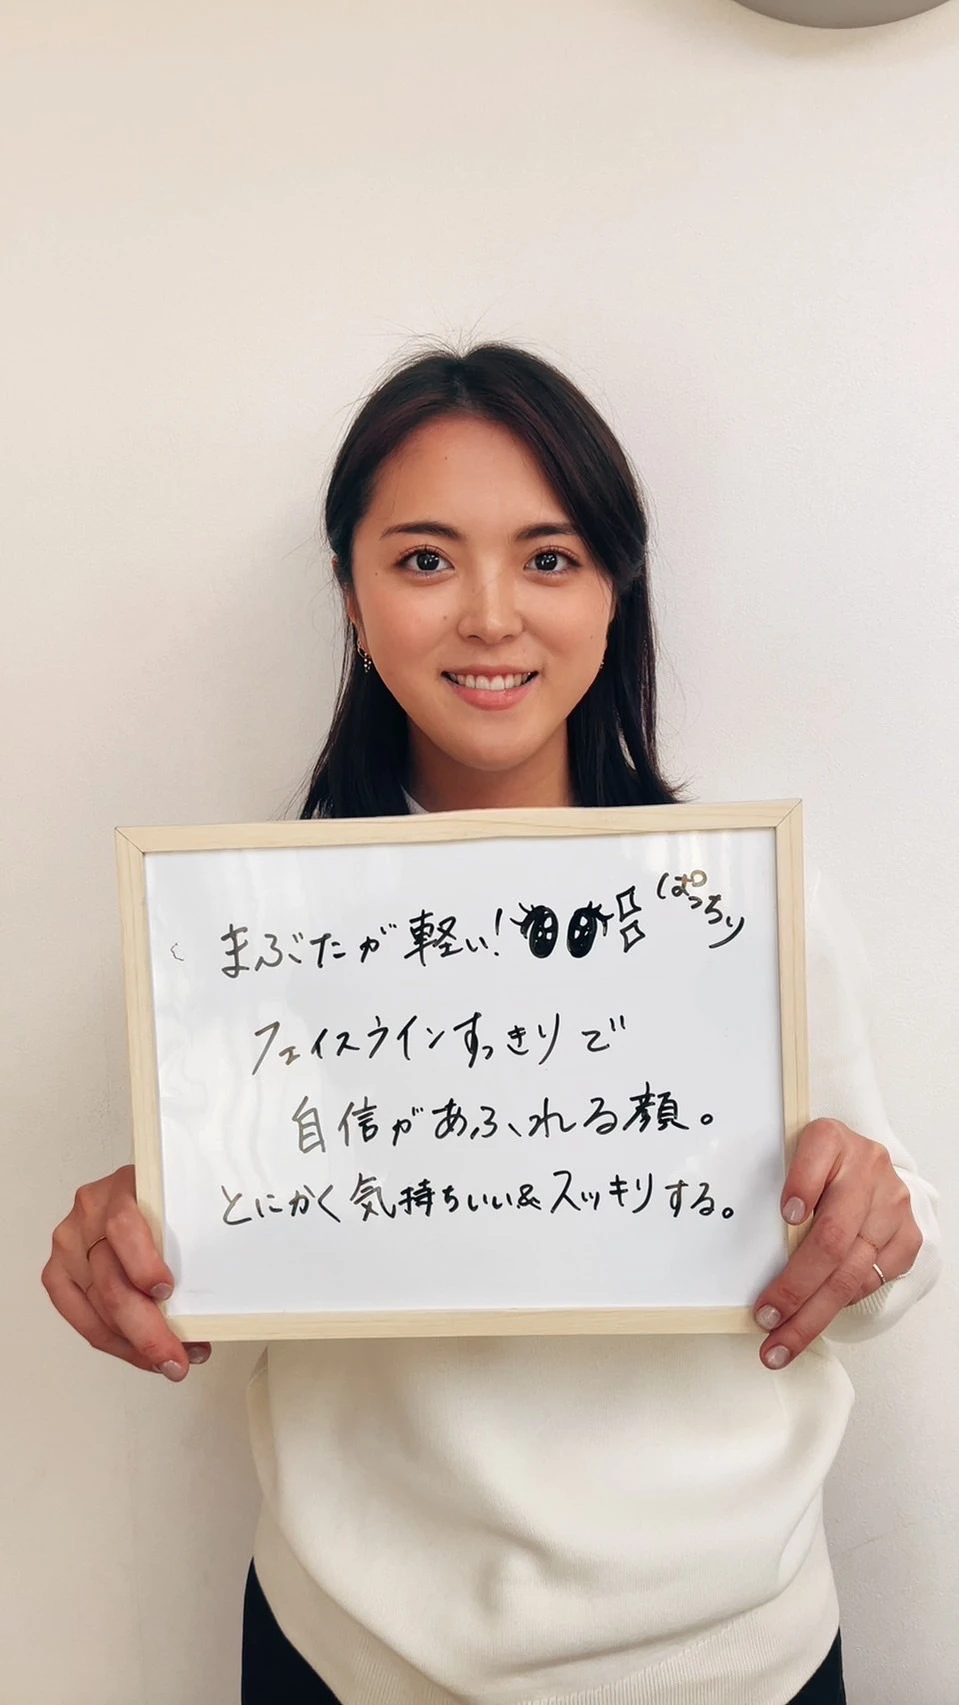 まぶたが軽い! ぱっちり
フェイスラインすっきりで
自信があふれる顔。
とにかく気持ちいい&スッキリする。